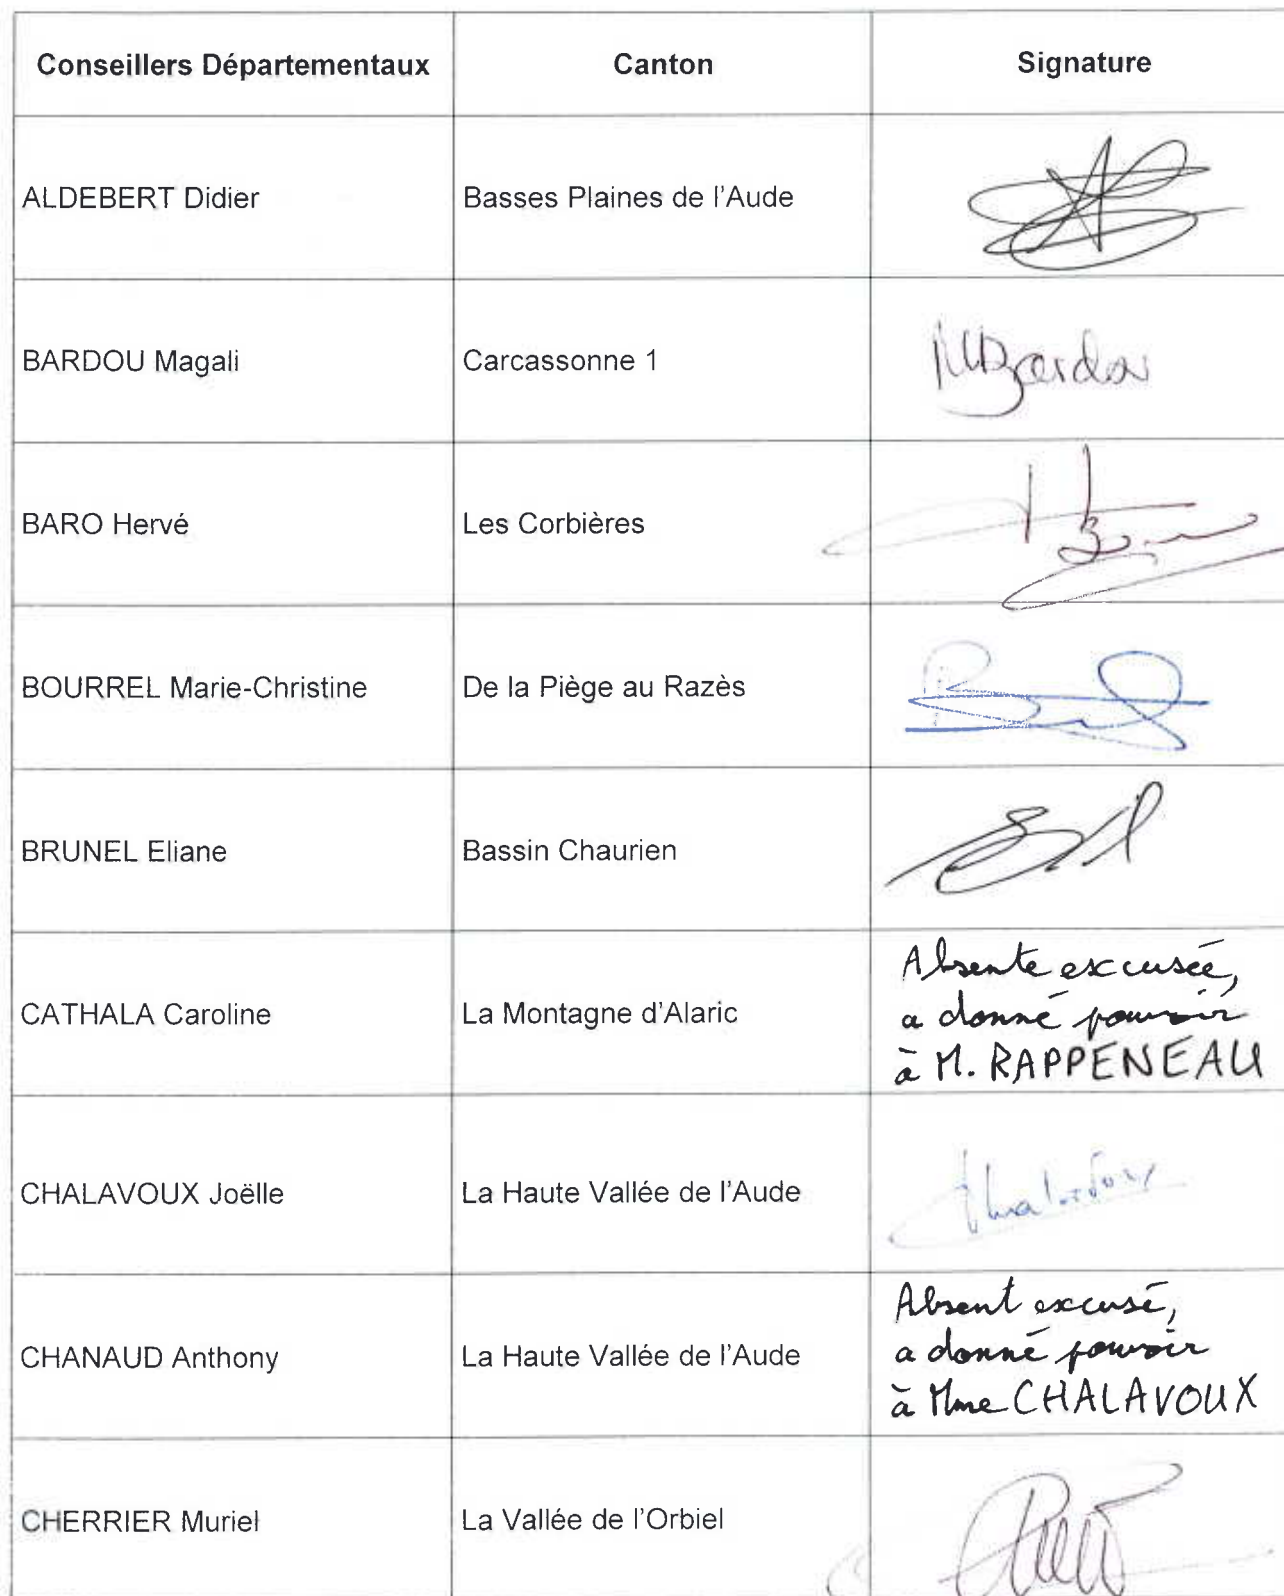 Conseillers Départementaux Canton Signature
ALDEBERT Didier Basses Plaines de l'Aude
BARDOU Magali Carcassonne 1 MBardou
BARO Hervé Les Corbières
BOURREL Marie-Christine De la Piège au Razès
BRUNEL Eliane Bassin Chaurien
CATHALA Caroline La Montagne d'Alaric
Absente excusée,
a donné pouvoir
à M. RAPPENEAU
CHALAVOUX Joëlle La Haute Vallée de l'Aude Chalavoux
CHANAUD Anthony La Haute Vallée de l'Aude
Absent excusé,
a donné pouvoir
à Mme CHALAVOUX
CHERRIER Muriel La Vallée de l'Orbiel